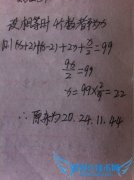 设相等时的数都为x
则(x+2)+(x-2)+2x+x/2=99
9x/2=99
x=99×2/9=22
∴原来为20.24.11.44